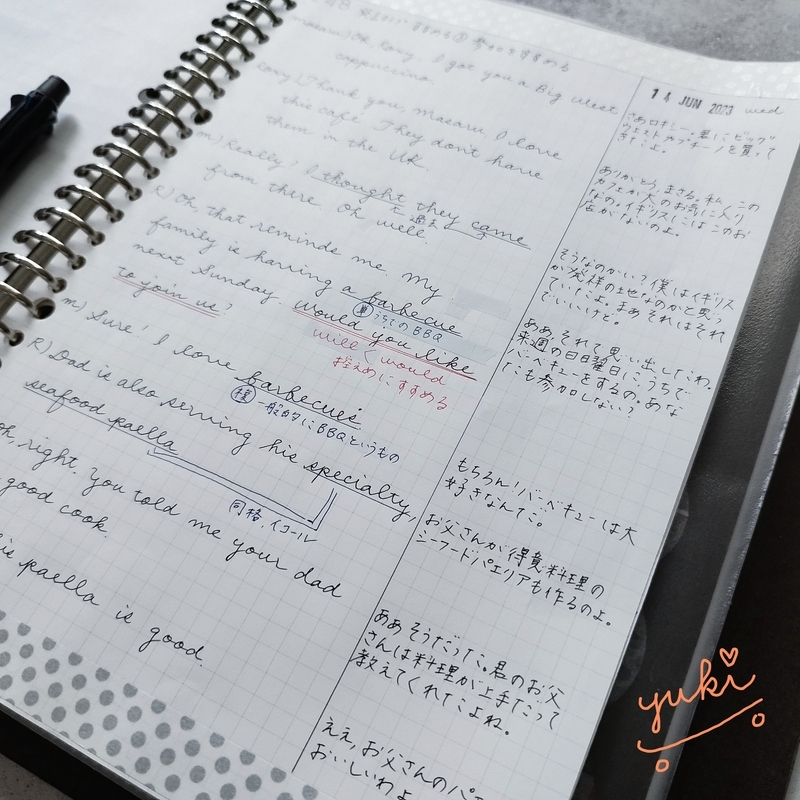 すすめる
masaru) Oh, Roxy. I got you a Big West
cappuccino.
Roxy) Thank you, Masaru, I love
this café. They don't have
them in the UK.
m) Really? I thought they came
と過去
from there. Oh well.
R) Oh, that reminds me. My
family is having a barbecue
単 うちのBBQ
next Sunday. Would you like
to join us?
will < would
控えめにすすめる
m) Sure! I love barbecues
複 一般的にBBQというもの
R) Dad is also serving his specialty,
seafood paella
同格. イコール
oh, right. You told me your dad
good cook.
paella is good.
14 JUN 2023 wed
さあロキシー。君にビッグ
ウエストカプチーノを買って
きたよ。
ありがとう、まさる。私、この
カフェが大のお気に入り
なの。イギリスにはこのお
店がないのよ。
そうなのかい？僕はイギリス
が発祥の地なのかと思っ
ていたよ。まあそれはそれ
でいいけど。
ああ、それで思い出したわ。
来週の日曜日に、うちで
バーベキューをするの。あな
たも参加しない？
もちろん！バーベキューは大
好きなんだ。
お父さんが得意料理の
シーフードパエリアも作るのよ。
ああそうだった。君のお父
さんは料理が上手だって
教えてくれたよね。
ええ、お父さんのパエ
おいしいわよ
yuki